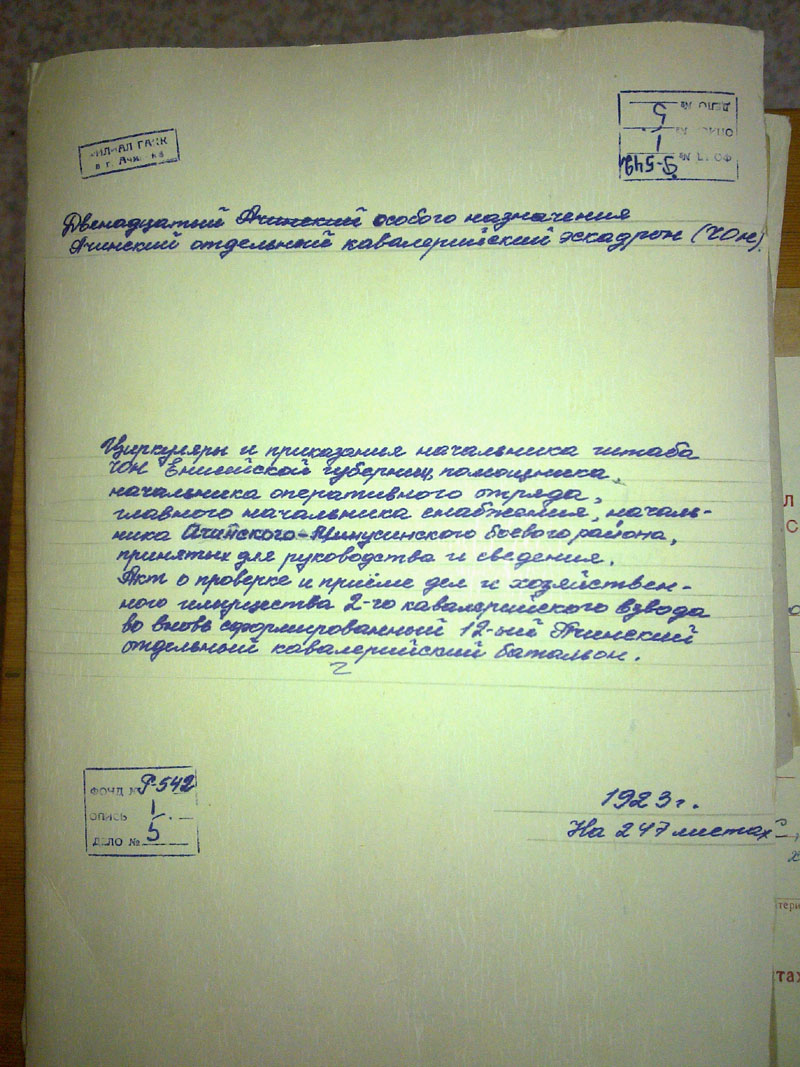 ФИЛИАЛ ГАКК
в г. Ачинске
ДЕЛО № 5
ОПИСЬ № 1
ФОНД № Р-542
Двенадцатый Ачинский особого назначения
Ачинский отдельный кавалерийский эскадрон (ЧОН).
Циркуляры и приказания начальника штаба
ЧОН Енисейской губернии, помощника,
начальника оперативного отряда,
главного начальника снабжения, началь-
ника Ачинского-Минусинского боевого района,
принятых для руководства и сведения.
Акт о проверке и приёме дел и хозяйствен-
ного имущества 2-го кавалерийского взвода
во вновь сформированный 12-ый Ачинский
отдельный кавалерийский батальон.
ФОНД № Р-542
ОПИСЬ 1
ДЕЛО № 5
1923 г.
На 247 листах
Л
С
тери
тах